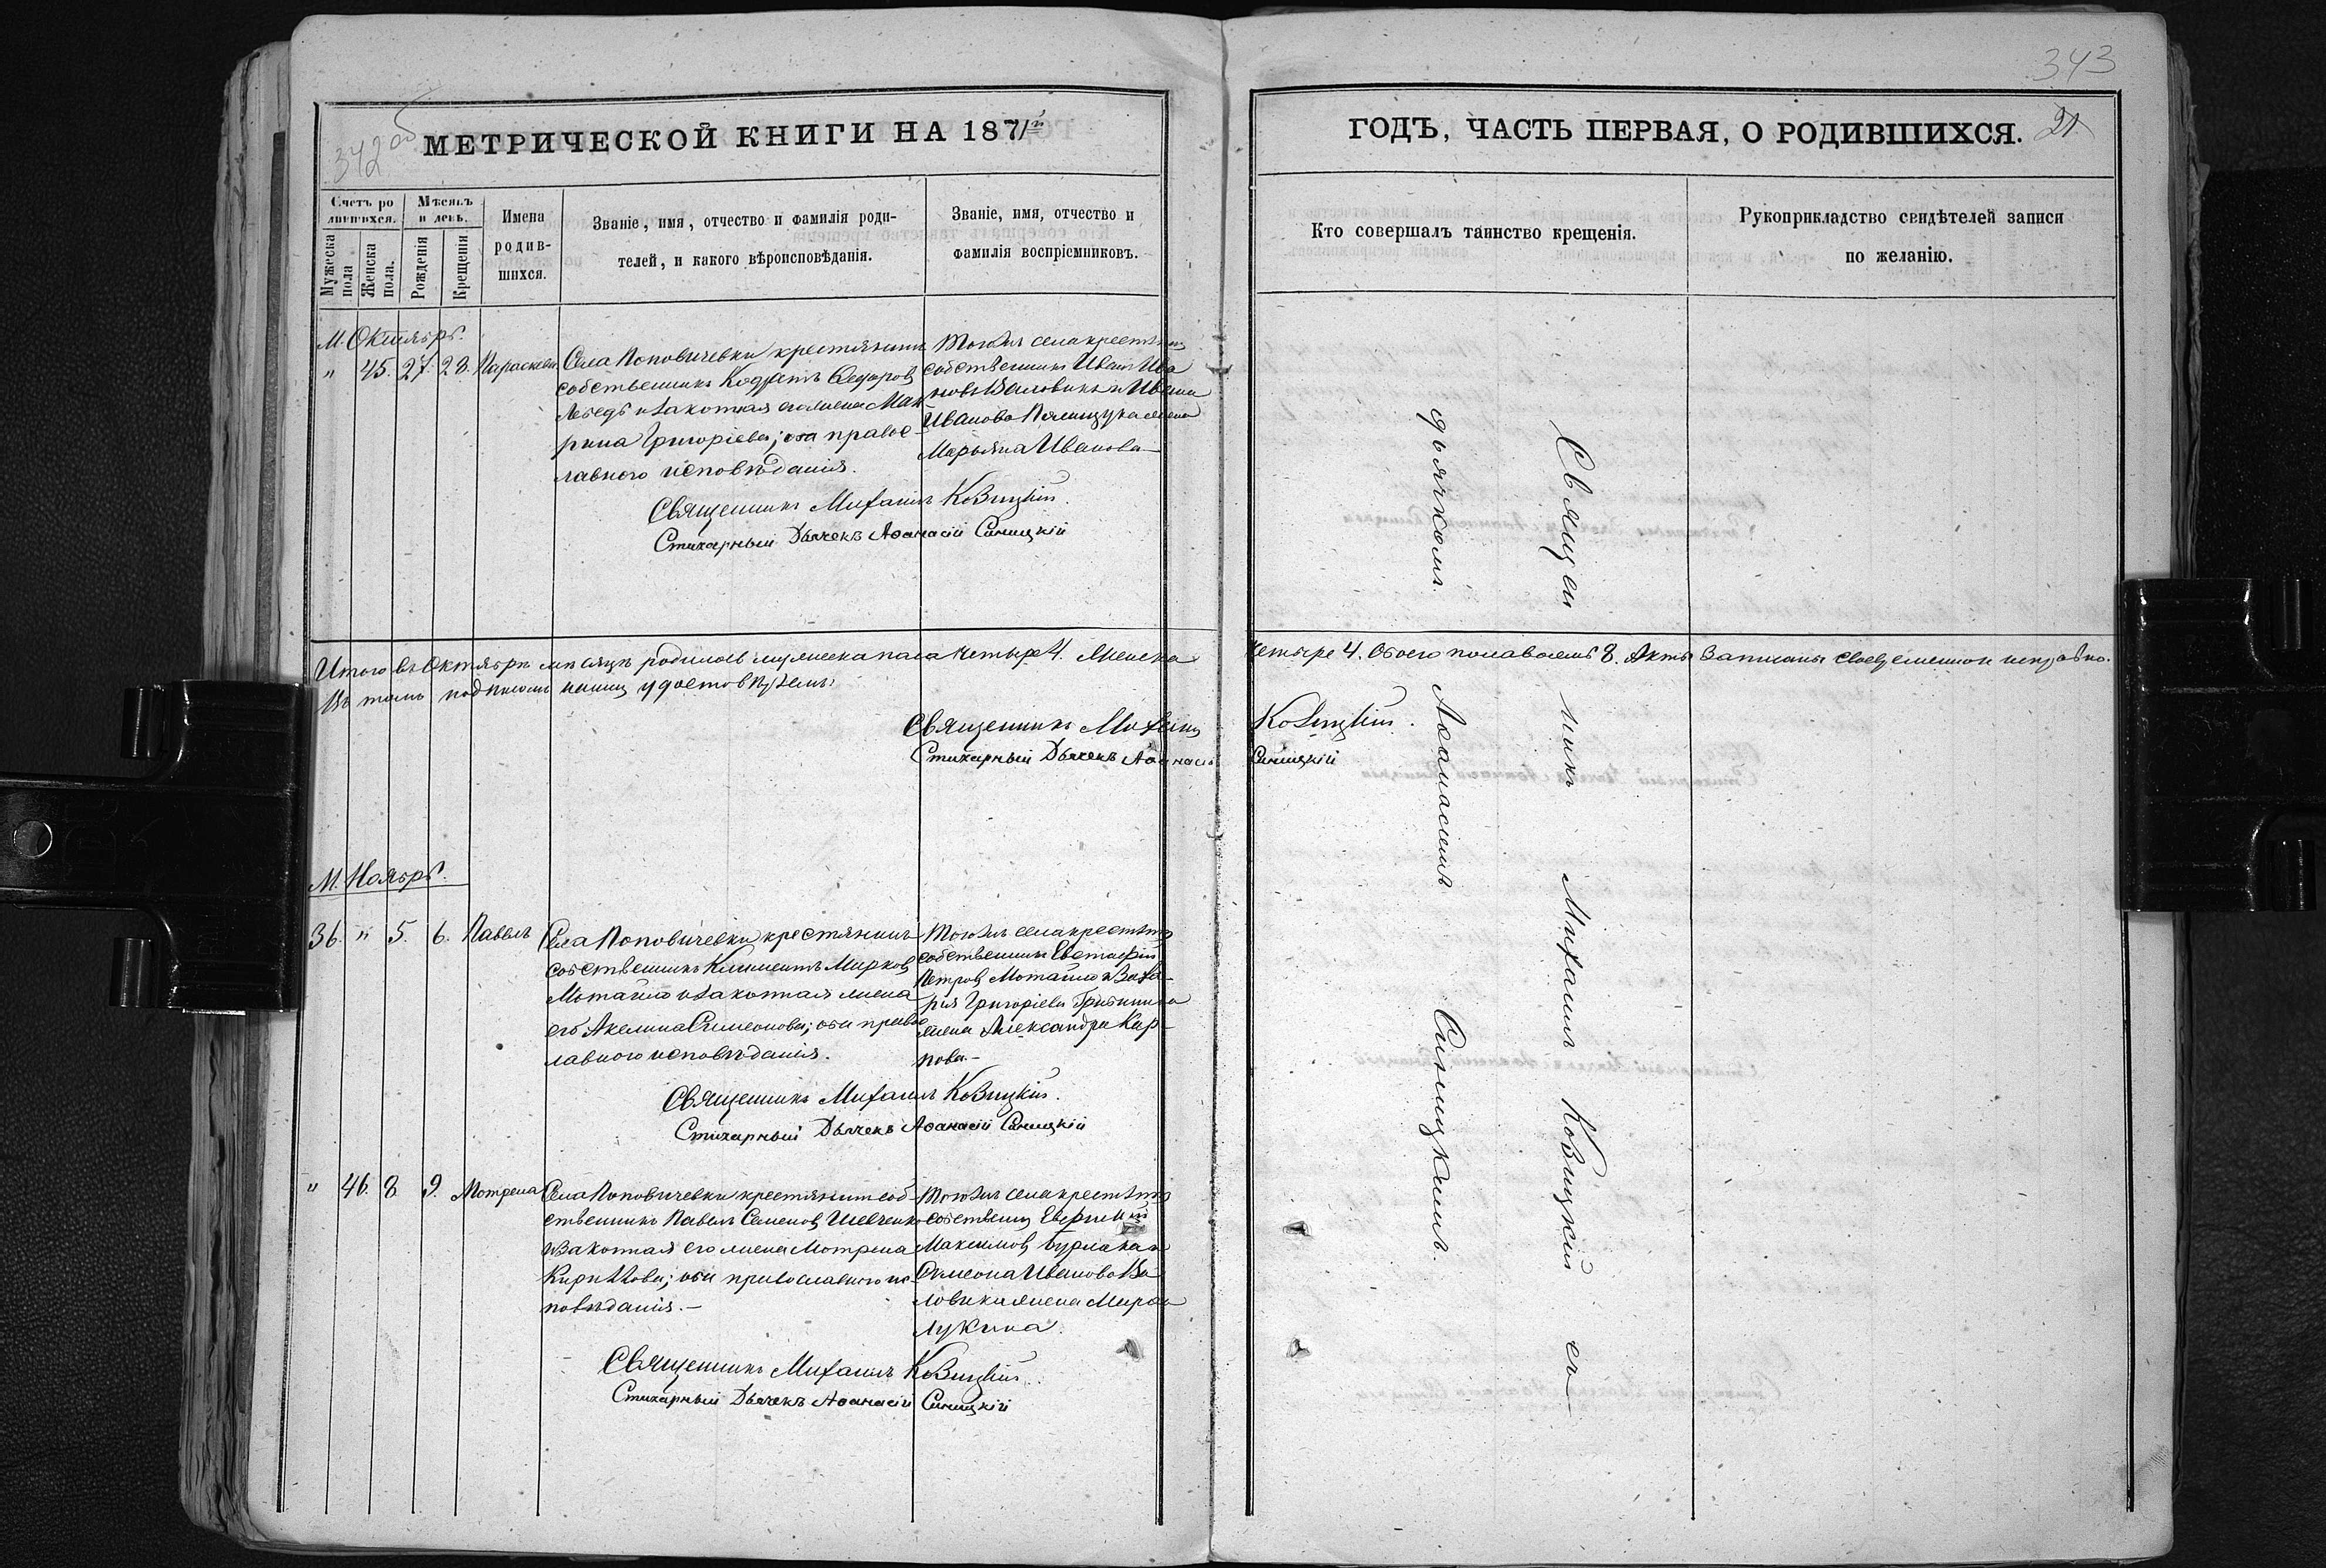 342 об
МЕТРИЧЕСКОЙ КНИГИ НА 1871й
Счетъ родившихся.
Мѣсяцъ и день.
Мужеска пола
Женска пола.
Рожденія
Крещенія
Имена родив-
шихся.
Званіе, имя, отчество и фамилія роди-
телей, и какого вѣроисповѣданія.
Званіе, имя, отчество и
фамилія воспріемниковъ.
М. Октябрь.
" 45. 27. 28. Параскева
Села Поповичевки крестьянинъ
собственникъ Кодратъ Федоровъ
Лебедь и законная его жена Мак-
рина Григоріева; оба правос-
лавного исповѣданія.
Тогожъ села крестьянинъ
собственникъ Иванъ Ива
новъ Валовикъ и Ивана
Иванова жена
Марьяна Иванова
Священникъ Михаилъ Ковицкій.
Стихарный Дьячекъ Аѳанасій Синицкій
Итого въ Октябрѣ мѣсяцѣ родилось мужеска пола четыре 4. Женска
Въ томъ подписомъ нашимъ удостовѣряемъ:
Священникъ Михаилъ
Стихарный Дьячекъ Аѳанасій
М. Ноябрь.
36. " 5. 6. Павелъ
Села Поповичевки крестьянинъ
собственникъ Климентъ Марковъ
Мотайло и законная жена
его Акелина Симеонова; оба правос
лавного исповѣданія.
Тогожъ села крестьянинъ
собственникъ Евстафій
Петровъ Мотайло и Заха-
рія Григоріева
жена Александра Кар-
пова.-
Священникъ Михаилъ Ковицкій.
Стихарный Дьячекъ Аѳанасій Синицкій
" 46. 8. 9. Мотрена
Села Поповичевки крестьянинъ соб-
ственникъ Павелъ Семеновъ Шевченко
и законная его жена Мотрена
Кириллова; оба православного ис-
повѣданія.-
Тогожъ села крестьянинъ
собственникъ
Максимовъ
Симеона Иванова Ва
ловика жена Марфа
Лукина.
Священникъ Михаилъ Ковицкій.
Стихарный Дьячекъ Аѳанасій Синицкій
343
ГОДЪ, ЧАСТЬ ПЕРВАЯ, О РОДИВШИХСЯ.
21
Кто совершалъ таинство крещенія.
Рукоприкладство свидѣтелей записи
по желанію.
четыре 4. Обоего пола восемь 8. Акты записаны своевременно и исправно.
Ковицкій.
Синицкій
Священникъ Михаилъ Ковицкій съ
дьячкомъ Аѳанасіемъ Синицкимъ.